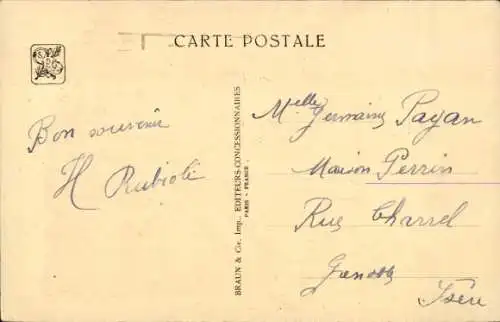 CARTE POSTALE
Bon souvenir
H Rubioli
BRAUN & Cie, Imp., EDITEURS-CONCESSIONNAIRES
PARIS - FRANCE
Melle Germaine Payan
Maison Perrin
Rue Charrel
Grenoble
Isère